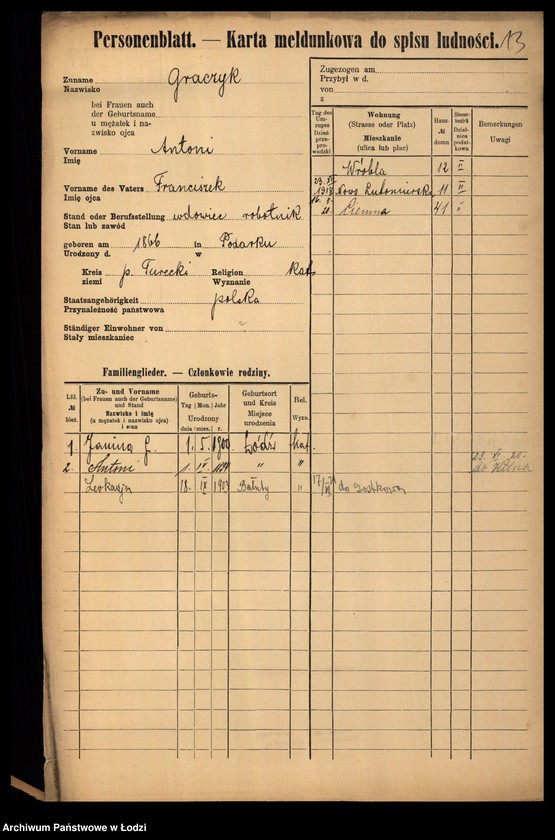 Personenblatt. — Karta meldunkowa do spisu ludności. 13
Zuname Graczyk
Nazwisko
bei Frauen auch
der Geburtsname
u mężatek i na-
zwisko ojca
Vorname Antoni
Imię
Vorname des Vaters Franciszek
Imię ojca
Stand oder Berufsstellung wdowiec robotnik
Stan lub zawód
geboren am 1866 in
Urodzony d. w
Kreis p. Turecki Religion Kat.
ziemi Wyznanie
Staatsangehörigkeit polska
Przynależność państwowa
Ständiger Einwohner von
Stały mieszkaniec
Zugezogen am
Przybył w d.
von
z
Tag des Um-zuges Dzień prze-prowadzki
Wohnung (Strasse oder Platz) Mieszkanie (ulica lub plac)
Haus- № domu
Steuer-bezirk Dziel-nica podat-kowa
Bemerkungen Uwagi
Wróbla 12 II
1918 Nowo Lutomierska 11 II
Ciemna 41
Familienglieder. — Członkowie rodziny.
Lfd. № bież.
Zu- und Vorname (bei Frauen auch der Geburtsname) und Stand Nazwisko i imię (u mężatek i nazwisko ojca) i stan
Geburts- Tag Mon. Jahr Urodzony dnia mies. r.
Geburtsort und Kreis Miejsce urodzenia
Rel. Wyzn.
1. Janina G. 1. 5. 1900 Łódź Kat.
2. Antoni 1. IV " "
Leokadja 18. IX 1907 Bałuty " 17/
Archiwum Państwowe w Łodzi